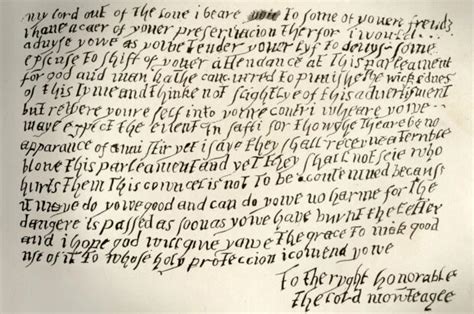 my lord out of the loue i beare yowe To some of youer frends
i haue a caer of youer preseruacion therfor i would
aduyse yowe as yowe tender youer lyf to deuys some
epscuse to shift of youer attendance at This parleament
for god and man hathe concurred to punishe the wickednes
of this tyme and thinke not slightlye of this aduertisment
but retyere youre self into youre contri wheare yowe
maye expect the euent in safti for thowghe theare be no
apparance of anni stir yet i saye they shall receyue a terrible
blowe this parleament and yet they shall not seie who
hurts them This councel is not To be contemned because
it maye do yowe good and can do yowe no harme for the
dangere is passed as soon as yowe haue burnt the letter
and i hope god will giue yowe the grace To mak good
use of it To whose holy proteccion i comend yowe
To the ryght honorable
The lord mowteagle